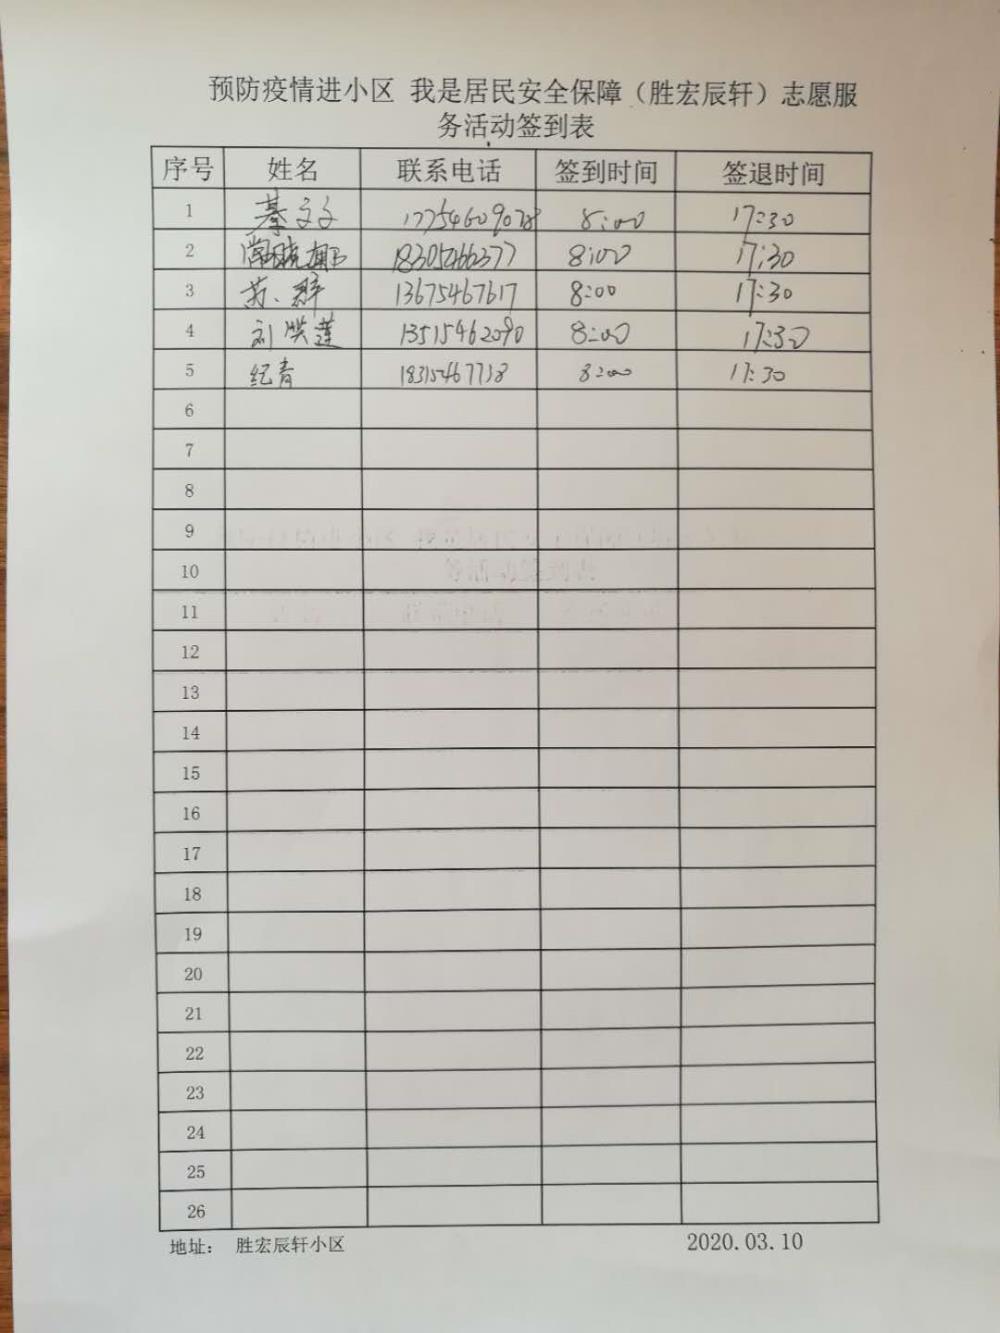 预防疫情进小区 我是居民安全保障（胜宏辰轩）志愿服
务活动签到表
序号 姓名 联系电话 签到时间 签退时间
1 綦文文 17754609078 8:00 17:30
2 18305466377 8:00 17:30
3 苏群 13675467617 8:00 17:30
4 刘洪莲 13515462090 8:00 17:30
5 纪青 18315467738 8:00 17:30
6
7
8
9
10
11
12
13
14
15
16
17
18
19
20
21
22
23
24
25
26
地址： 胜宏辰轩小区 2020.03.10